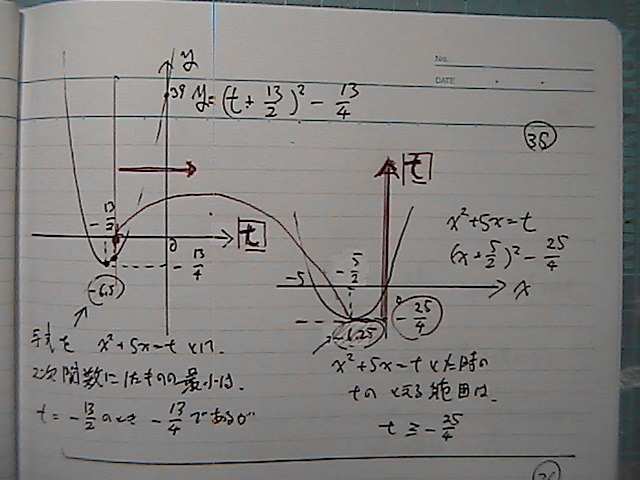 No.
DATE
38
y
39
y=(t+13/2)²-13/4
t
-13/2
0
-13/4
-6.5
t
x²+5x=t
(x+5/2)²-25/4
-5
-5/2
0
x
-6.25
-25/4
与式を x²+5x=t とけ.
2次関数にしたものの最小は.
t=-13/2 のとき -13/4 であるが
x²+5x=t とした時の
tの とえる範囲は.
t≧-25/4